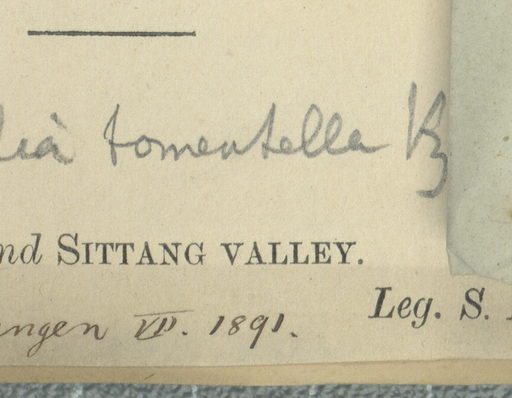 lia tomentella Kz
nd SITTANG VALLEY.
Leg. S.
ngen VII. 1891.